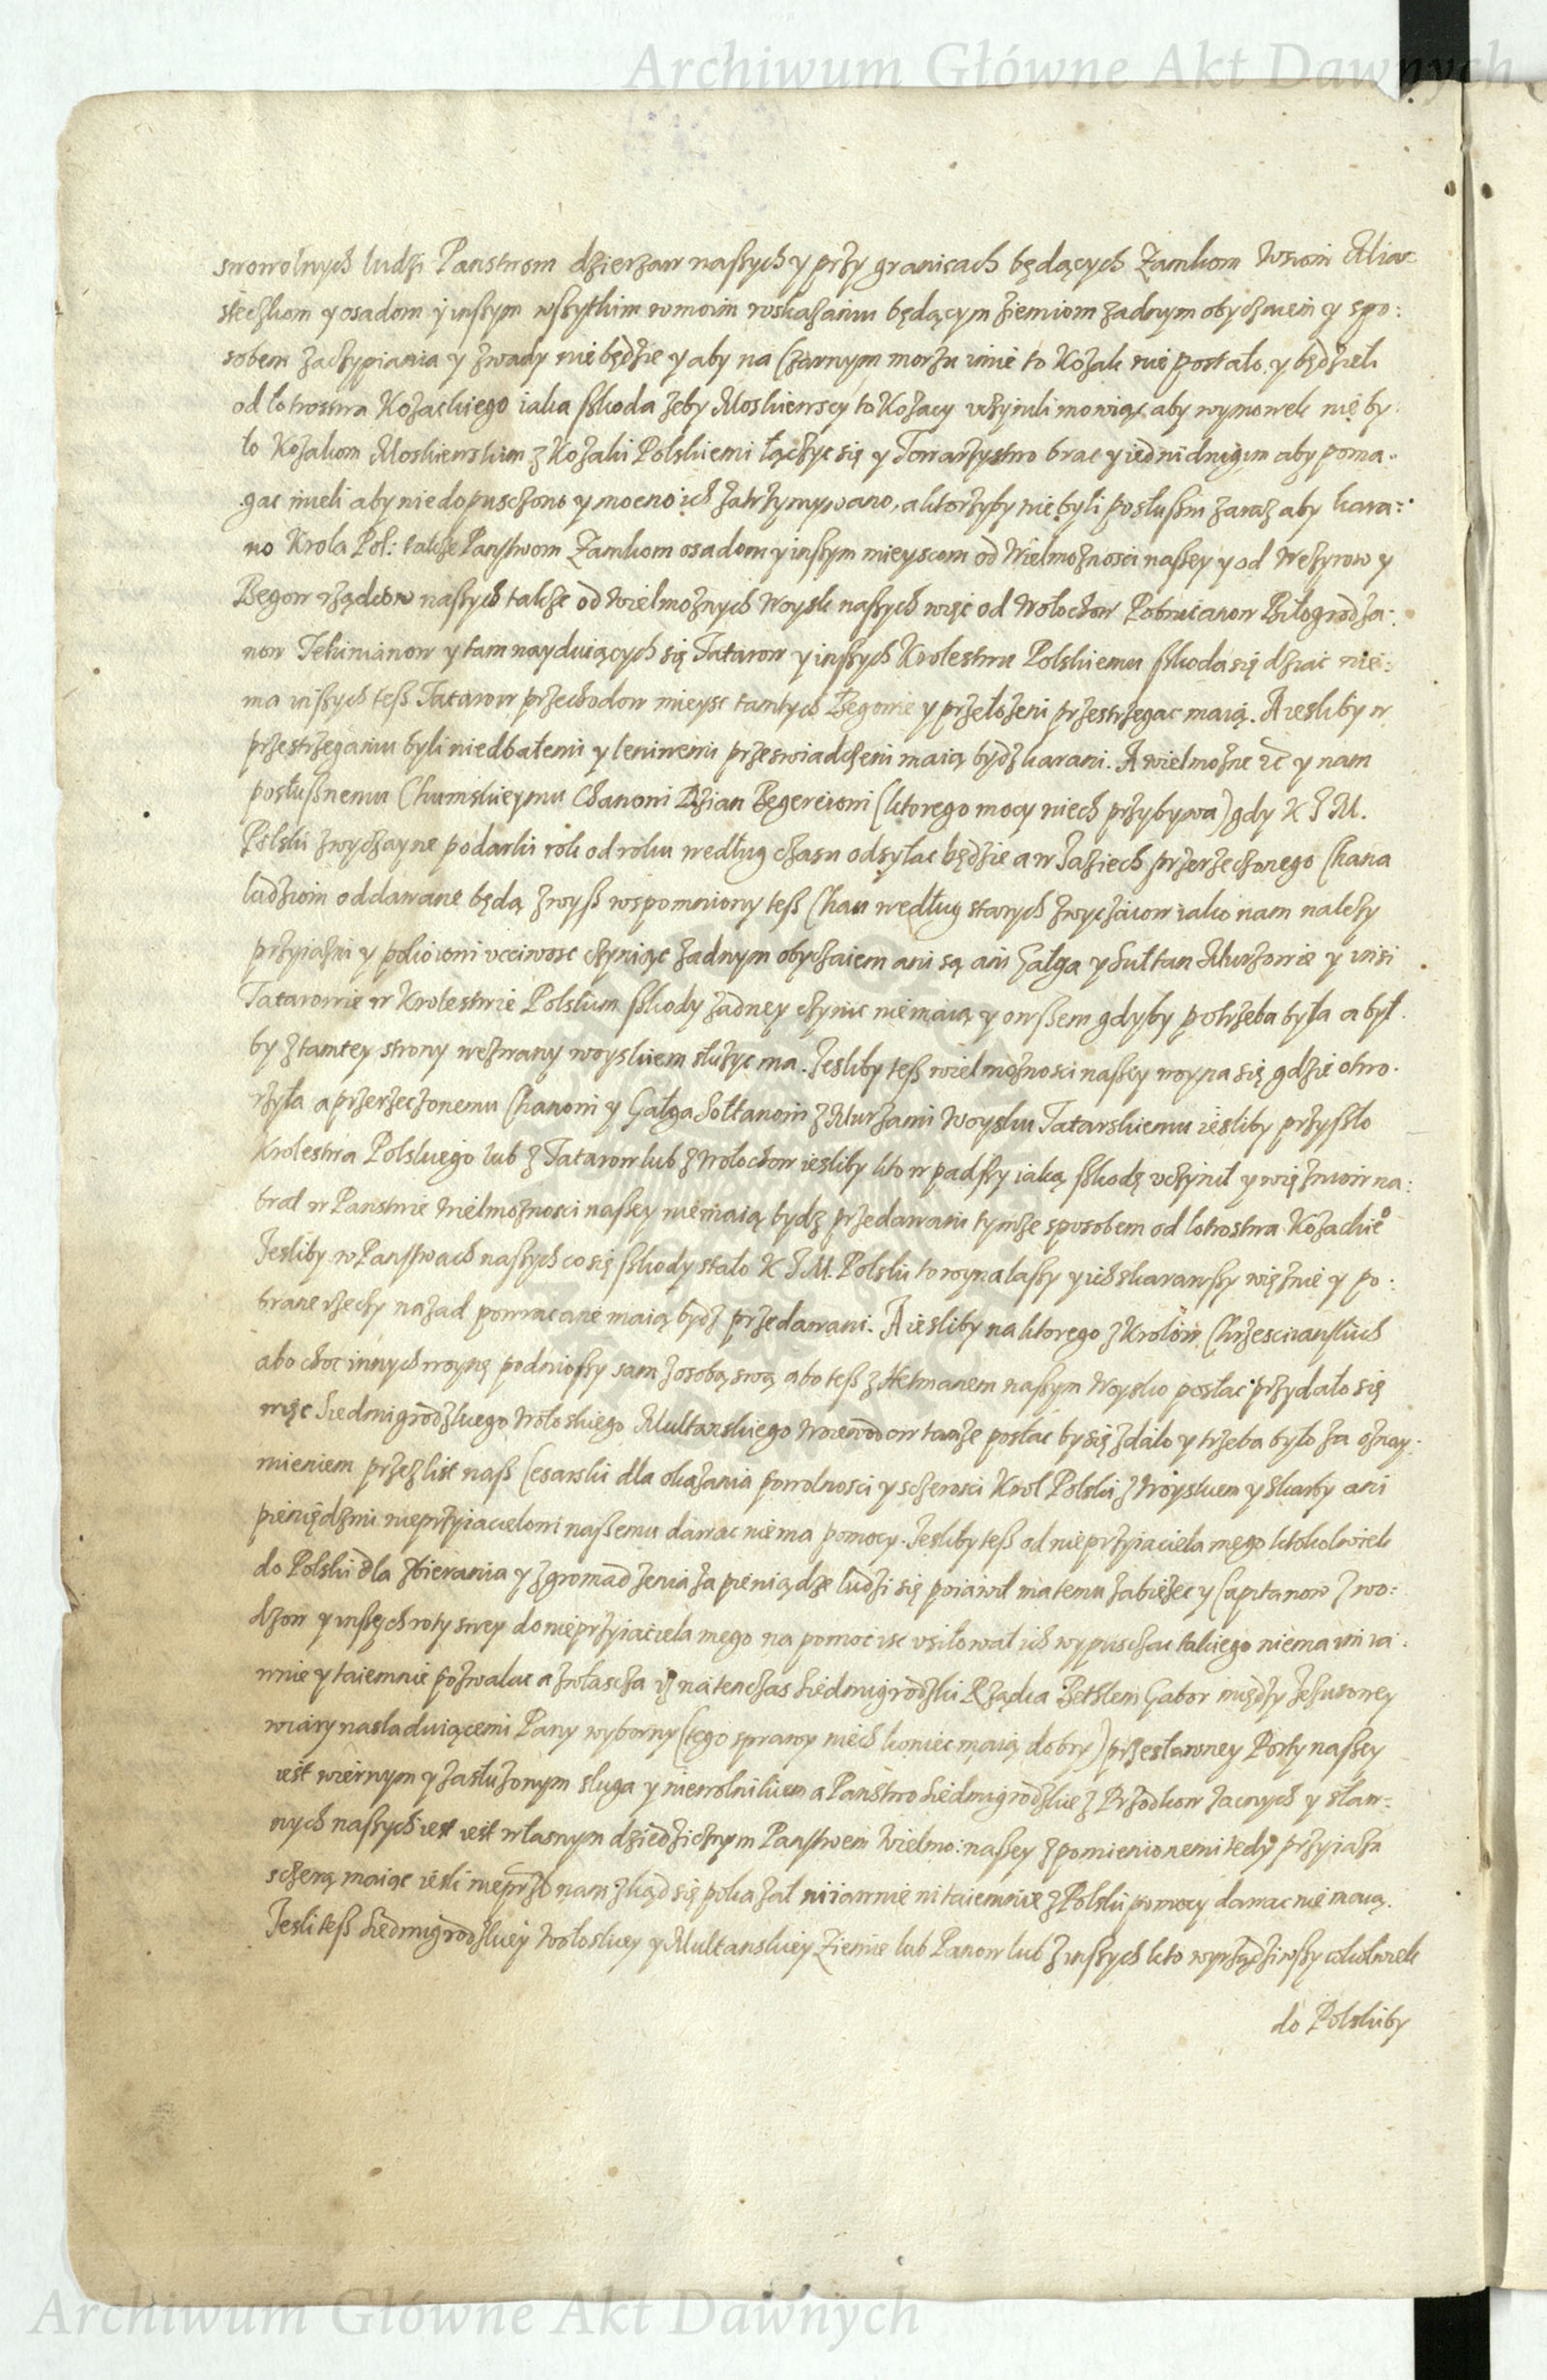 Archiwum Główne Akt Dawnych
swowolnych ludzi Panstwom dzierzaw naszych y przy granicach będących Zamkom Wsiom Mia-
steczkom y osadom y inszym wszytkim w moim wskazaniu będącym ziemiom zadnym obyczaiem y spo:
sobem zaczypiania y zwady nie będzie y aby na Czarnym morzu imie to Kozak nie postało, y będzieli
od łotrostwa Kozackiego iaka szkoda zeby Moskiewscy to Kozacy uczynili mowiąc aby wymowek nie by:
ło Kozakom Moskiewskim z Kozaki Polskiemi łączyc się y Towarzystwo brac y iedni drugim aby poma-
gac mieli aby niedopusczono y mocno ich zatrzymywano, a ktorzyby nie byli posłuszni zaraz aby kara:
no Krola Pol: takze Panstwom Zamkom osadom y inszym mieyscom od Wielmoznosci naszey y od Wezyrow y
Begow rządcow naszych takze od Wielmoznych Woysk naszych więc od Wołochow Biłogrodza:
now Tehinianow y tam nayduiących się Tatarow y inszych Krolestwu Polskiemu szkoda się dziac nie:
ma inszych tesz Tatarow przechodow mieysc tamtych Begowie y przełozeni przestrzegac maią. A iesliby w
przestrzeganiu byli niedbałemi y leniwemi przeswiadczeni maią bydz karani. A wielmozne etc y nam
posłusznemu Chrimskieymu Chanowi Dzian Begereiowi (ktorego mocy niech przybywa) gdy K J M.
Polski zwyczayne podarki rok od roku według czasu odsyłac będzie a w Jaziech przerzeczonego Chana
ludziom oddawane będą zwysz wspomniony tesz Chan według starych zwyczaiow iako nam nalezy
przyiazni y pokoiowi ucciwosc czyniąc zadnym obyczaiem ani są ani Gałga y Sułtan Murzowie y insi
Tatarowie w Krolestwie Polskim szkody zadney czynic niemaią y owszem gdyby potrzeba była a był-
by z tamtey strony wezwany woyskiem słuzyc ma. Jesliby tesz wielmoznosci naszey woyna się gdzie otwo-
rzyła a przerzeczonemu Chanowi y Gałga Sołtanowi z Murzami Woysku Tatarskiemu iesliby przyszło
Krolestwa Polskiego lub z Tatarow lub z Wołochow iesliby kto w padszy iaką szkodę uczynił y więzniow na:
brał w Panstwie Wielmoznosci naszey niemaią bydz przedawani tymze sposobem od łotrostwa Kozackie°
Jesliby w Panstwach naszych co się szkody stało K J M. Polski to wynalaszy y ich skarawszy więznie y po:
brane rzeczy nazad powracane maią bydz przedawani. A iesliby na ktorego z Krolow Chrzescianskich
abo choc innych woynę podniosszy sam z osobą swą abo tesz z Hetmanem naszym Woysko posłac przydało się
więc Siedmigrodzkiego Wołoskiego Multanskiego Woiewodow takze posłac by się zdało y trzeba było za oznay-
mieniem przez list nasz Cesarski dla okazania powolnosci y sczerosci Krol Polski z Woyskiem y Skarby ani
pieniędzmi nieprzyiacielowi naszemu dawac niema pomocy. Jesliby tesz od nieprzyiaciela mego ktokolwiek
do Polski dla zbierania y zgromadzenia za pieniądze ludzi się poiawił ma temu zabiezec y Capitanow z wo:
dzow y inszych roty swey do nieprzyiaciela mego na pomoc isc usiłował ich wypusczac takiego niema ani ia-
wnie y taiemnie pozwalac a zwłascza iz na tenczas Siedmigrodzki Rządca Bethlem Gabor między Jezusowey
wiary nasladuiącemi Pany wyborny (tego sprawy niech koniec maią dobry) przesławney Porty naszey
iest wiernym y zasłuzonym sługa y niewolnikiem a Panstwo Siedmigrodzkie z Przodkow zacnych y sław-
nych naszych iest iest własnym dziedzicznym Panstwem Wielmo: naszey z pomienionemi tedy przyiazn
sczerą maiąc iesli nieprzł nam zkąd się pokazał ni iawnie ni taiemnie z Polski pomocy dawac nie maią.
Jesli tesz Siedmigrodzkiey Wołoskiey y Multanskiey Ziemie lub Panow lub z inszych kto wyrządziwszy cokolwiek
do Polskiby
Archiwum Główne Akt Dawnych